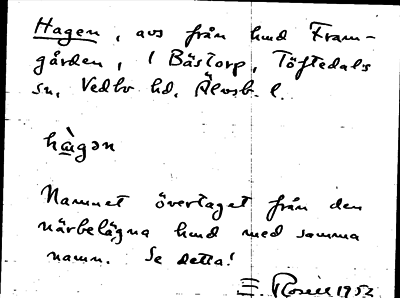 Hagen, avs från hmd Fram-
gården, 1 Bästorp, Töftedals
sn, Vedbo hd, Älvsb. l.
hàgən
Namnet övertaget från den
närbelägna hmd med samma
namn. Se detta!
E. Rosell 1952